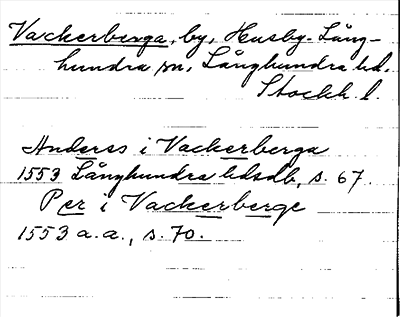 Vackerberga, by, Husby-Lång-
hundra sn, Långhundra hd.
Stockh. l.
Anderss i Vackerberga
1553 Långhundra hdsdb, s. 67.
Per i Vackerberge
1553 a.a., s. 70.